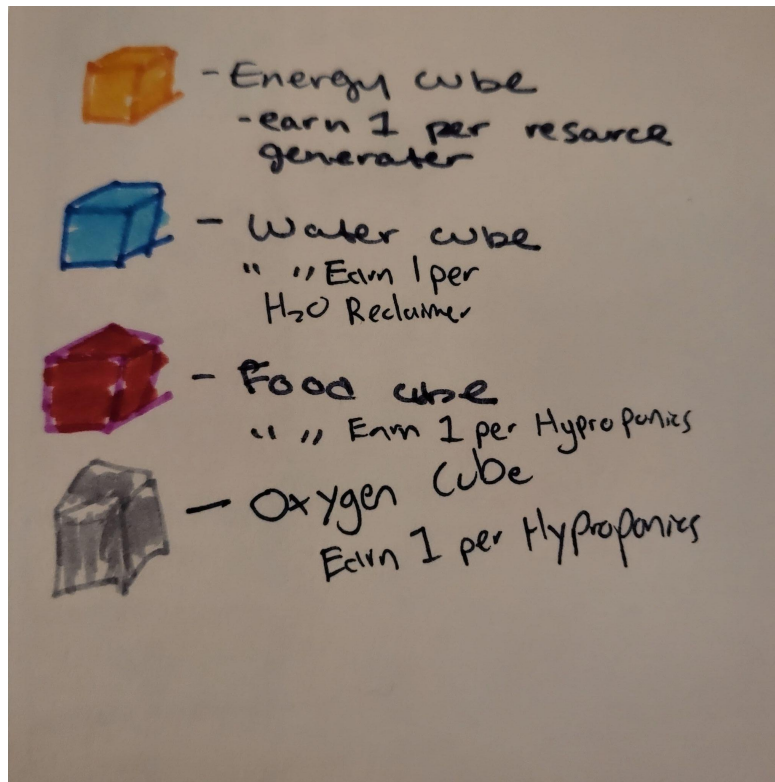 - Energy cube
- earn 1 per resarce
generater
- Water cube
" " Earn 1 per
H₂O Reclaimer
- Food cube
" " Earn 1 per Hyproponics
- Oxygen Cube
Earn 1 per Hyproponics